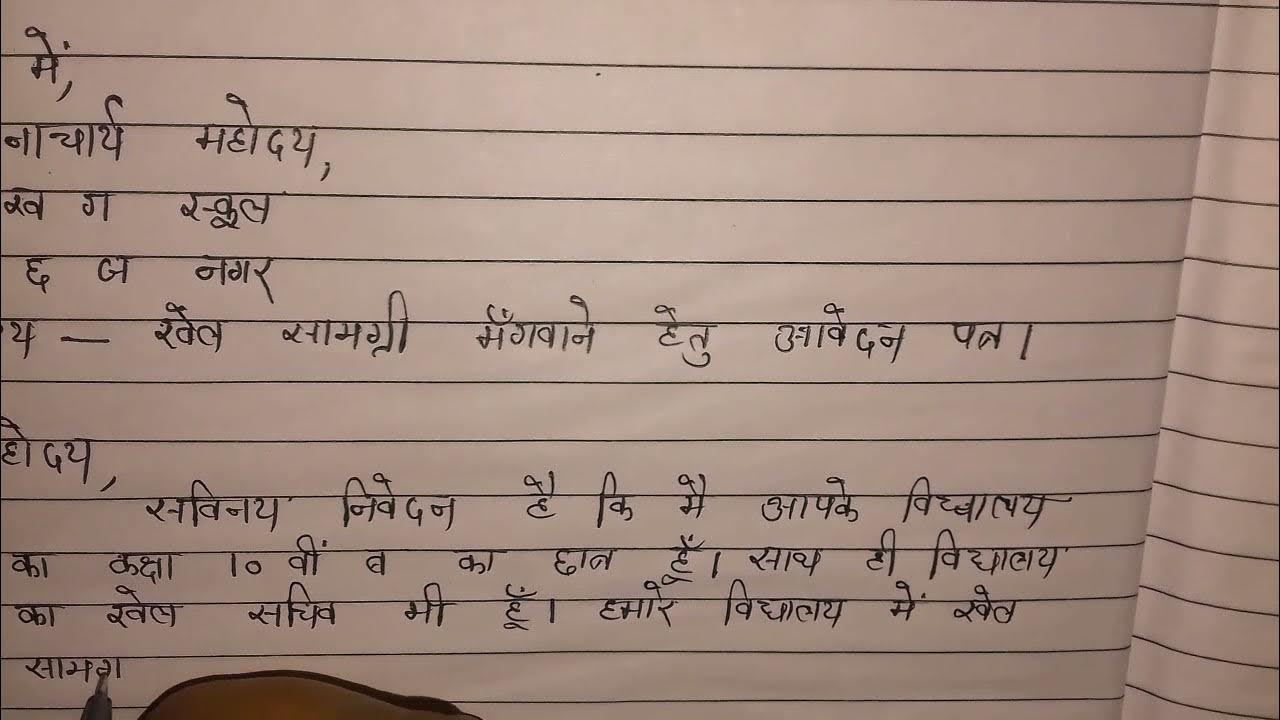 में,
नाचार्य महोदय,
ख ग स्कूल
छ ज नगर
य — खेल सामग्री मँगवाने हेतु आवेदन पत्र।
होदय,
सविनय निवेदन है कि मै आपके विद्यालय
का कक्षा 10 वीं ब का छात्र हूँ। साथ ही विद्यालय
का खेल सचिव भी हूँ। हमारे विद्यालय में खेल
सामग्र